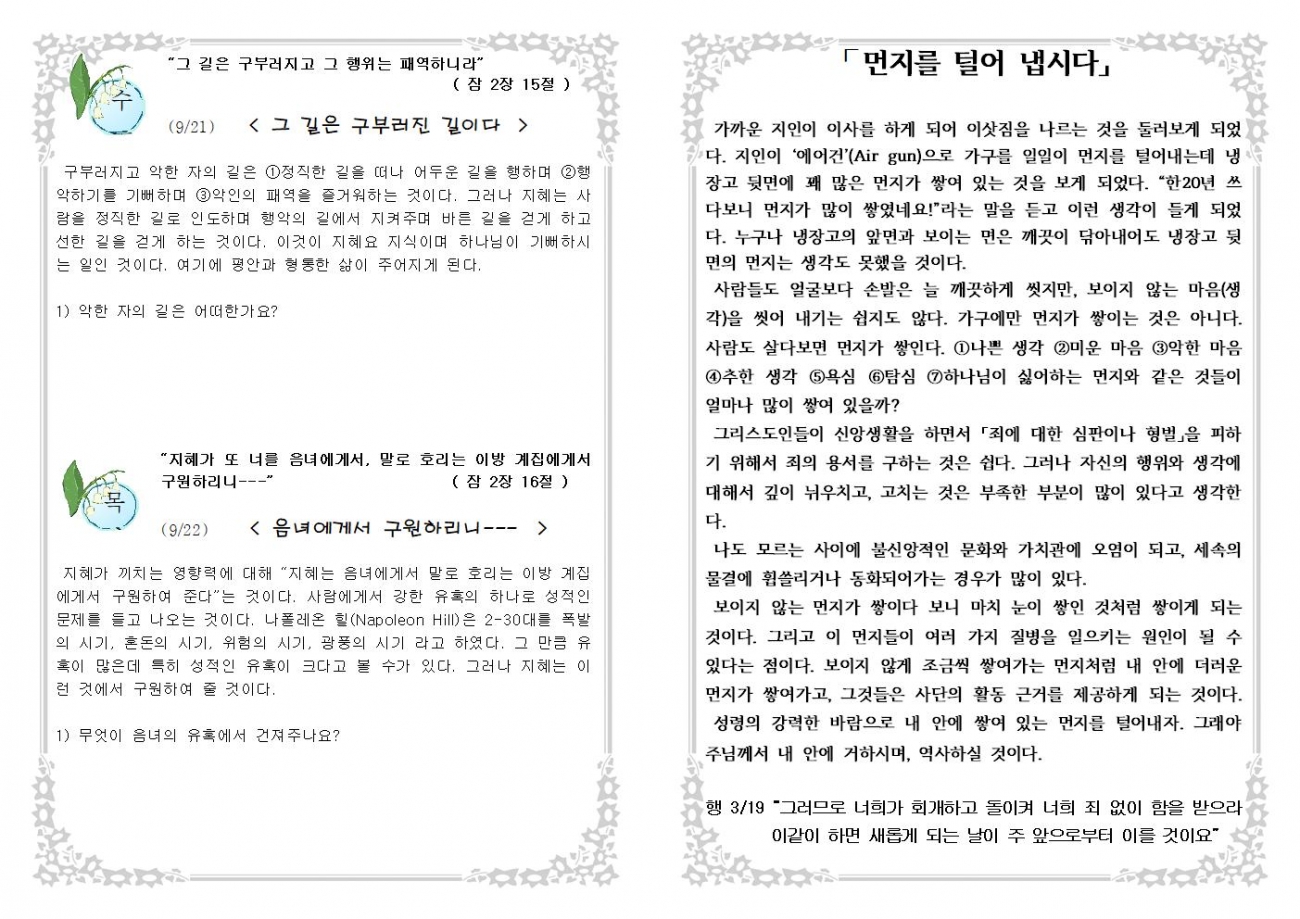 “그 길은 구부러지고 그 행위는 패역하니라”
( 잠 2장 15절 )
수
(9/21) < 그 길은 구부러진 길이다 >
구부러지고 악한 자의 길은 ①정직한 길을 떠나 어두운 길을 행하며 ②행
악하기를 기뻐하며 ③악인의 패역을 즐거워하는 것이다. 그러나 지혜는 사
람을 정직한 길로 인도하며 행악의 길에서 지켜주며 바른 길을 걷게 하고
선한 길을 걷게 하는 것이다. 이것이 지혜요 지식이며 하나님이 기뻐하시
는 일인 것이다. 여기에 평안과 형통한 삶이 주어지게 된다.
1) 악한 자의 길은 어떠한가요?
“지혜가 또 너를 음녀에게서, 말로 호리는 이방 계집에게서
구원하리니---” ( 잠 2장 16절 )
목
(9/22) < 음녀에게서 구원하리니--- >
지혜가 끼치는 영향력에 대해 “지혜는 음녀에게서 말로 호리는 이방 계집
에게서 구원하여 준다”는 것이다. 사람에게서 강한 유혹의 하나로 성적인
문제를 들고 나오는 것이다. 나폴레온 힐(Napoleon Hill)은 2-30대를 폭발
의 시기, 혼돈의 시기, 위험의 시기, 광풍의 시기 라고 하였다. 그 만큼 유
혹이 많은데 특히 성적인 유혹이 크다고 볼 수가 있다. 그러나 지혜는 이
런 것에서 구원하여 줄 것이다.
1) 무엇이 음녀의 유혹에서 건져주나요?
「먼지를 털어 냅시다」
가까운 지인이 이사를 하게 되어 이삿짐을 나르는 것을 둘러보게 되었
다. 지인이 ‘에어건’(Air gun)으로 가구를 일일이 먼지를 털어내는데 냉
장고 뒷면에 꽤 많은 먼지가 쌓여 있는 것을 보게 되었다. “한20년 쓰
다보니 먼지가 많이 쌓였네요!”라는 말을 듣고 이런 생각이 들게 되었
다. 누구나 냉장고의 앞면과 보이는 면은 깨끗이 닦아내어도 냉장고 뒷
면의 먼지는 생각도 못했을 것이다.
사람들도 얼굴보다 손발은 늘 깨끗하게 씻지만, 보이지 않는 마음(생
각)을 씻어 내기는 쉽지도 않다. 가구에만 먼지가 쌓이는 것은 아니다.
사람도 살다보면 먼지가 쌓인다. ①나쁜 생각 ②미운 마음 ③악한 마음
④추한 생각 ⑤욕심 ⑥탐심 ⑦하나님이 싫어하는 먼지와 같은 것들이
얼마나 많이 쌓여 있을까?
그리스도인들이 신앙생활을 하면서 「죄에 대한 심판이나 형벌」을 피하
기 위해서 죄의 용서를 구하는 것은 쉽다. 그러나 자신의 행위와 생각에
대해서 깊이 뉘우치고, 고치는 것은 부족한 부분이 많이 있다고 생각한
다.
나도 모르는 사이에 불신앙적인 문화와 가치관에 오염이 되고, 세속의
물결에 휩쓸리거나 동화되어가는 경우가 많이 있다.
보이지 않는 먼지가 쌓이다 보니 마치 눈이 쌓인 것처럼 쌓이게 되는
것이다. 그리고 이 먼지들이 여러 가지 질병을 일으키는 원인이 될 수
있다는 점이다. 보이지 않게 조금씩 쌓여가는 먼지처럼 내 안에 더러운
먼지가 쌓여가고, 그것들은 사단의 활동 근거를 제공하게 되는 것이다.
성령의 강력한 바람으로 내 안에 쌓여 있는 먼지를 털어내자. 그래야
주님께서 내 안에 거하시며, 역사하실 것이다.
행 3/19 “그러므로 너희가 회개하고 돌이켜 너희 죄 없이 함을 받으라
이같이 하면 새롭게 되는 날이 주 앞으로부터 이를 것이요”